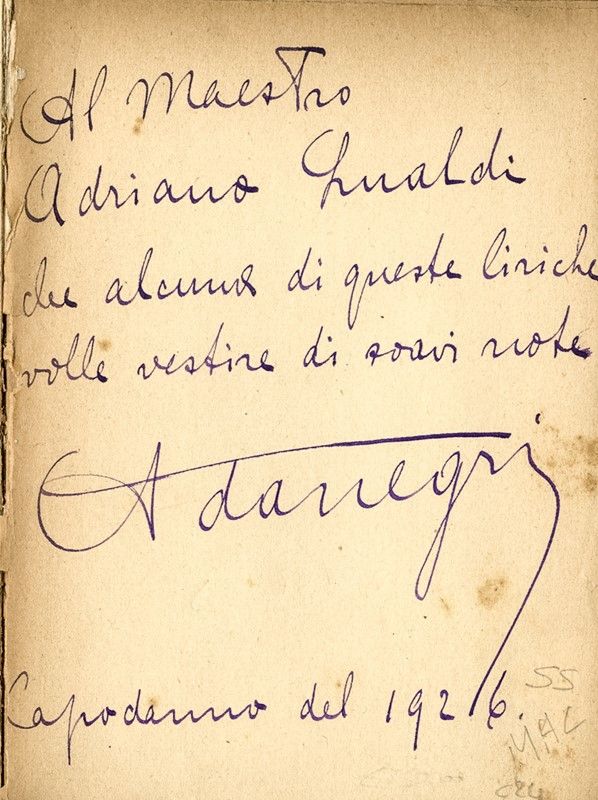 Al Maestro
Adriano Lualdi
che alcuna di queste liriche
volle vestire di soavi note
Ada Negri
Capodanno del 1926.
SS